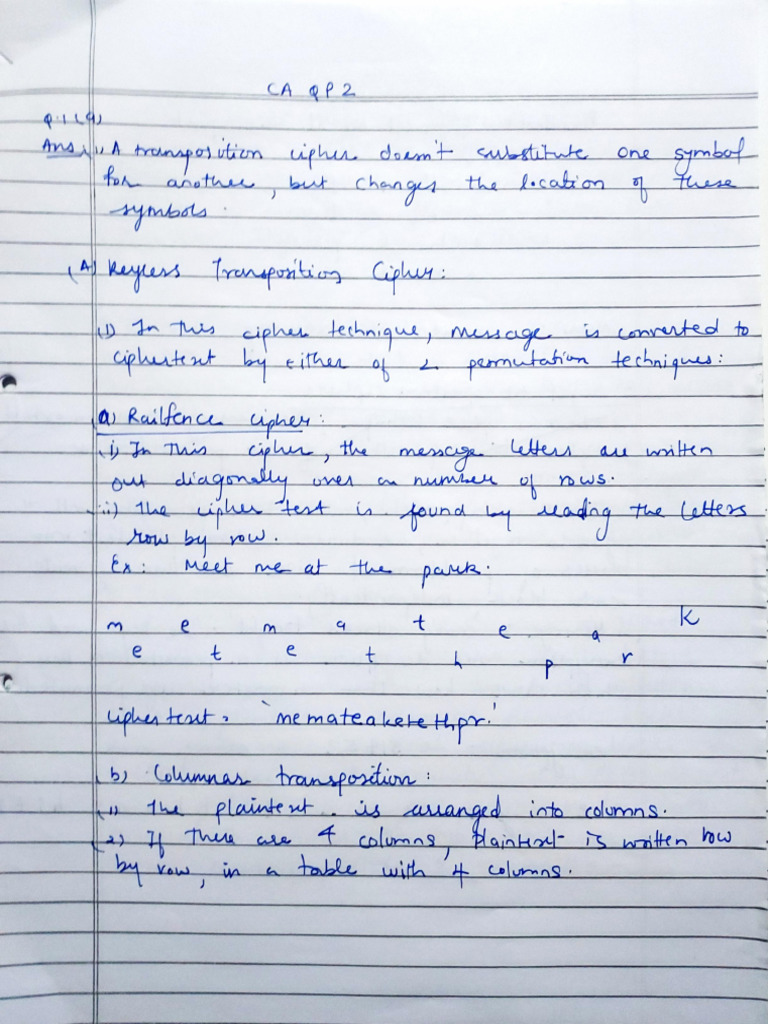 CA QP2
Q.1 (a)
Ans: i) A transposition cipher doesn't substitute one symbol
for another, but changes the location of these
symbols.
(A) Keyless Transposition Cipher:
(1) In this cipher technique, message is converted to
ciphertext by either of 2 permutation techniques:
(a) Railfence cipher:
(i) In this cipher, the message letters are written
out diagonally over a number of rows.
(ii) The cipher text is found by reading the letters
row by row.
Ex: Meet me at the park.
m e m a t e a k
e t e t h p r
Ciphertext = 'memateaketethpr.'
(b) Columnar transposition:
(1) The plaintext is arranged into columns.
(2) If there are 4 columns, plaintext is written row
by row, in a table with 4 columns.